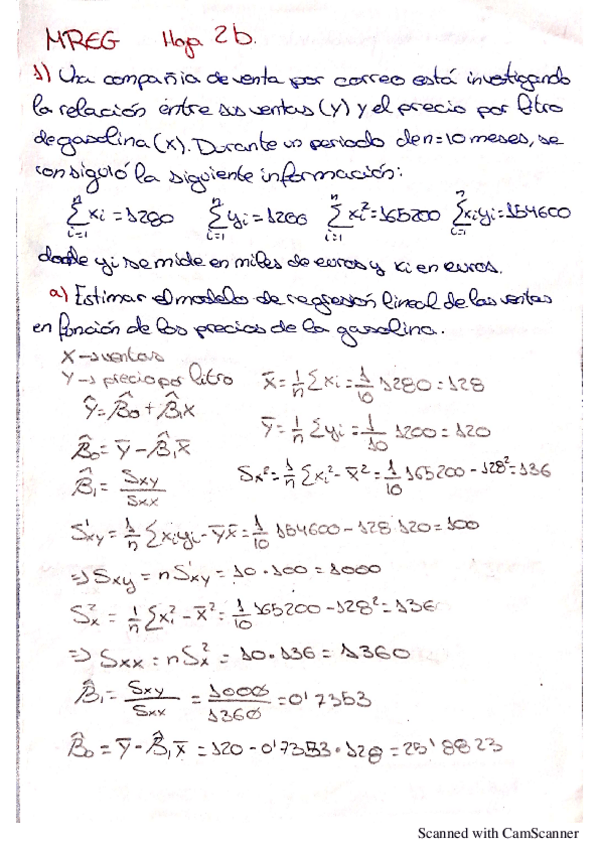 MREG Hoja 2b.
1) Una compañia de venta por correo está investigando
la relación entre sus ventas (y) y el precio por litro
de gasolina (x). Durante un periodo de n=10 meses, se
consiguió la siguiente información:
∑ᵢ₌₁ⁿ xi = 1280 ∑ᵢ₌₁ⁿ yi = 1200 ∑ᵢ₌₁ⁿ xi² = 165200 ∑ᵢ₌₁ⁿ xiyi = 154600
donde yi se mide en miles de euros y xi en euros.
a) Estimar el modelo de regresión lineal de las ventas
en función de los precios de la gasolina.
X → ventas
Y → precio por litro
x̄ = 1/n ∑xi = 1/10 1280 = 128
Ŷ = β̂0 + β̂1X
ȳ = 1/n ∑yi = 1/10 1200 = 120
β̂0 = ȳ - β̂1x̄
Sx² = 1/n ∑xi² - x̄² = 1/10 165200 - 128² = 136
β̂1 = Sxy/Sxx
S'xy = 1/n ∑xiyi - ȳx̄ = 1/10 154600 - 128·120 = 100
=> Sxy = nS'xy = 10·100 = 1000
Sx² = 1/n ∑xi² - x̄² = 1/10 165200 - 128² = 136
=> Sxx = nSx² = 10·136 = 1360
β̂1 = Sxy/Sxx = 1000/1360 = 0'7353
β̂0 = ȳ - β̂1x̄ = 120 - 0'7353·128 = 25'8823
Scanned with CamScanner